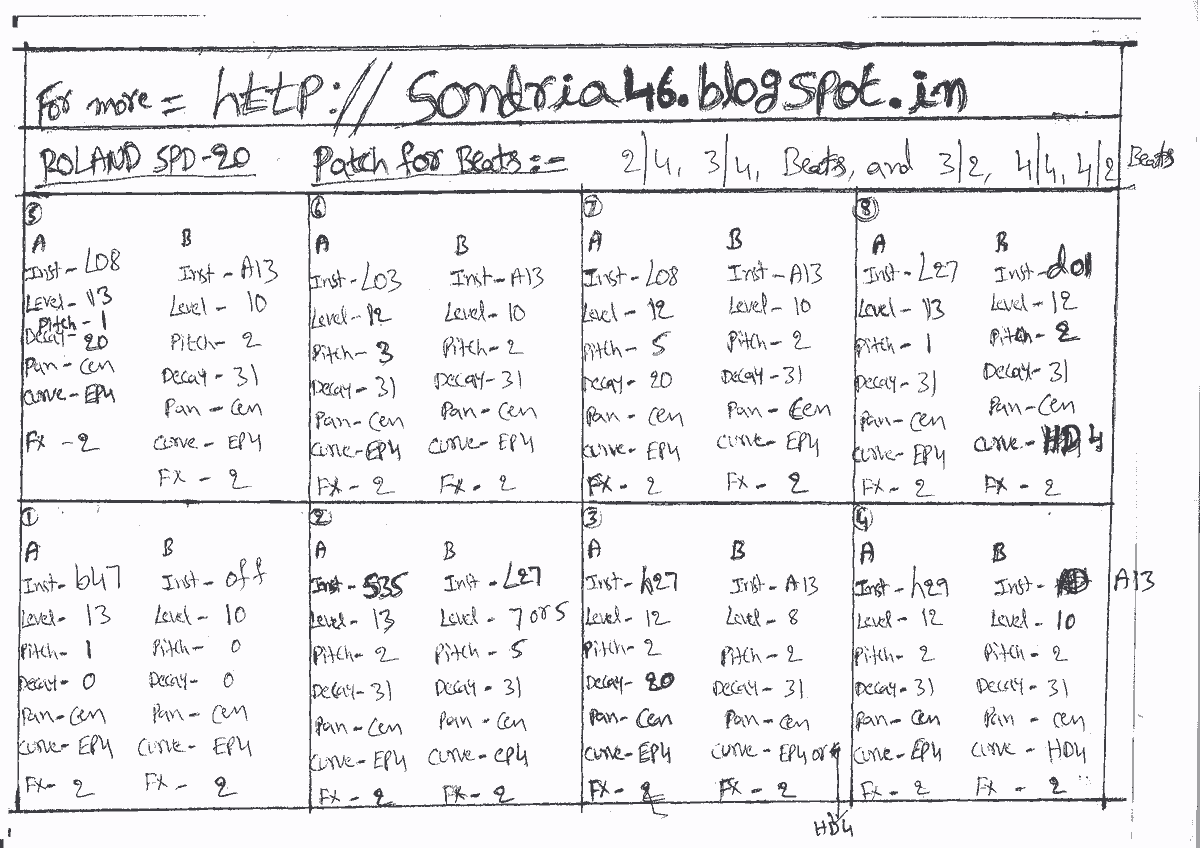 For more = http://Sondria46.blogspot.in
ROLAND SPD-20 Patch for Beats:= 2/4, 3/4, Beats, and 3/2, 4/4, 4/2 Beats
5
A
Inst- L08
Level- 13
Pitch- 1
Decay- 20
Pan- Cen
Curve- EP4
FX - 2
B
Inst- A13
Level- 10
Pitch- 2
Decay- 31
Pan- Cen
Curve- EP4
FX - 2
6
A
Inst- L03
Level- 12
Pitch- 3
Decay- 31
Pan- Cen
Curve- EP4
FX- 2
B
Inst- A13
Level- 10
Pitch- 2
Decay- 31
Pan- Cen
Curve- EP4
FX- 2
7
A
Inst- L08
Level- 12
Pitch- 5
Decay- 20
Pan- Cen
Curve- EP4
FX- 2
B
Inst- A13
Level- 10
Pitch- 2
Decay- 31
Pan- Cen
Curve- EP4
FX- 2
8
A
Inst- L27
Level- 13
Pitch- 1
Decay- 31
Pan- Cen
Curve- EP4
FX- 2
B
Inst- d01
Level- 12
Pitch- 2
Decay- 31
Pan- Cen
Curve- HD4
FX- 2
1
A
Inst- b47
Level- 13
Pitch- 1
Decay- 0
Pan- Cen
Curve- EP4
FX- 2
B
Inst- off
Level- 10
Pitch- 0
Decay- 0
Pan- Cen
Curve- EP4
FX- 2
2
A
Inst- S35
Level- 13
Pitch- 2
Decay- 31
Pan- Cen
Curve- EP4
FX- 2
B
Inst- L27
Level- 7 or 5
Pitch- 5
Decay- 31
Pan- Cen
Curve- EP4
FX- 2
3
A
Inst- h27
Level- 12
Pitch- 2
Decay- 20
Pan- Cen
Curve- EP4
FX- 2
B
Inst- A13
Level- 8
Pitch- 2
Decay- 31
Pan- Cen
Curve- EP4 or
HD4
FX- 2
4
A
Inst- h29
Level- 12
Pitch- 2
Decay- 31
Pan- Cen
Curve- EP4
FX- 2
B
Inst- A13
Level- 10
Pitch- 2
Decay- 31
Pan- Cen
Curve- HD4
FX - 2